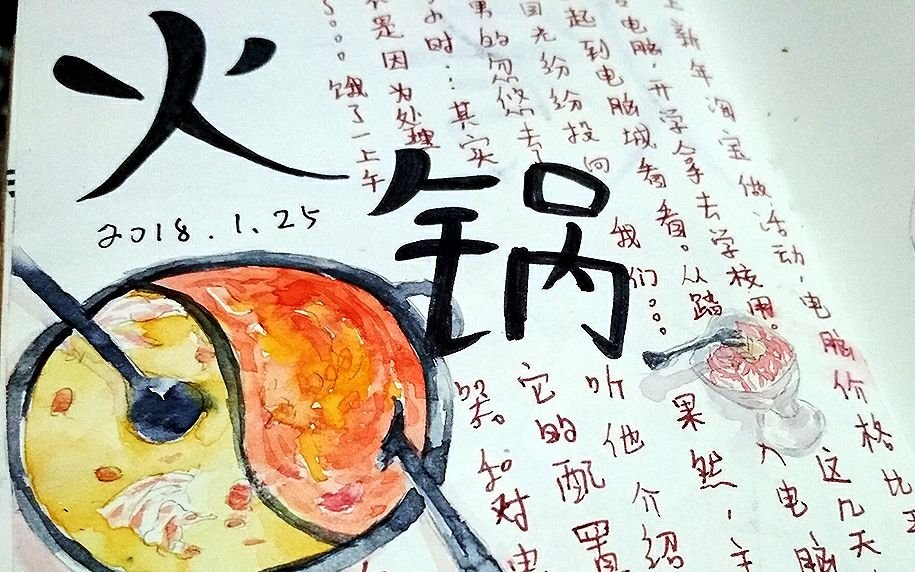 火锅
2018.1.25
新年淘宝做活动，电脑价格比
电脑，开学拿去学校用。这几天
起到电脑城看看。从踏入电脑
目光纷纷投向我们。。。果然，主
男的忽悠去听他介绍
小时…其实它的配置
是因为处理
笑。和对电
。。。饿了一上午